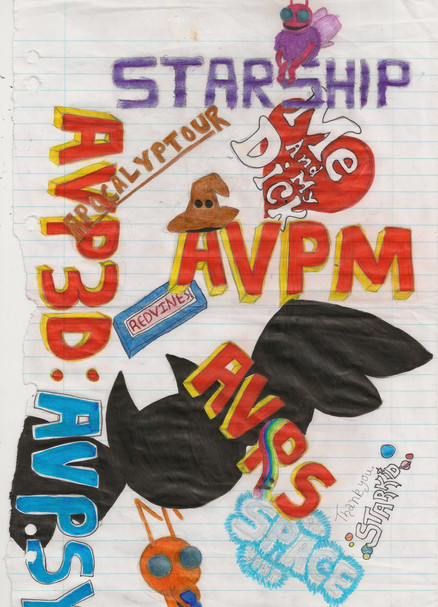 STARSHIP
APOCALYPTOUR
Me
And
My
Dick
AVPM
REDVINES
AVP3D:
AVPSY
AVPS
SPACE
Thank you
STARKID